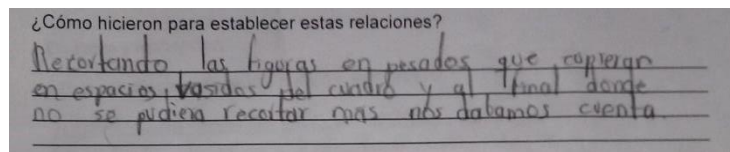 ¿Cómo hicieron para establecer estas relaciones?
Recortando las figuras en pesados que copieran
en espacios vasidos del cuadro y al final donde
no se pudiera recortar mas nos dabamos cuenta